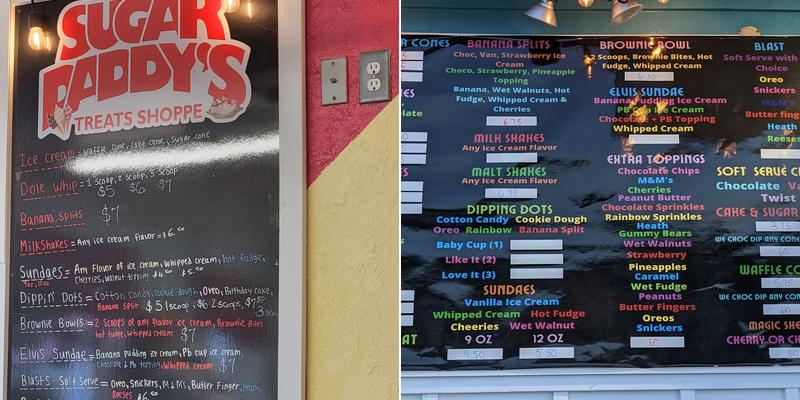 SUGAR
DADDY'S
TREATS SHOPPE
Ice cream = Waffle cone, cake cone, sugar cone
Dole Whip = 1 scoop, 2 scoop, 3 scoop
$5 $6 $7
Banana Splits
$7
MilkShakes = Any ice cream flavor = $6.50
Sundaes = Any Flavor of ice cream, whipped cream, hot fudge,
Cherries, walnut topping $4.50 $5.50
Dippin' Dots = Cotton candy, cookie dough, Oreo, Birthday cake,
Banana Split $5 1 scoop, $6 2 scoops, $7.50
Brownie Bowls = 2 Scoops of any flavor ice cream, Brownie Bites
hot fudge, whipped cream $7
Elvis Sundae = Banana pudding ice cream, Pb cup ice cream,
Chocolate & Pb topping, whipped cream $7
Blasts - Soft Serve = Oreo, Snickers, M&Ms, Butter Finger, Heath,
Reeses $6.
R CONES
BANANA SPLITS
Choc, Van, Strawberry Ice
Cream
Choco, Strawberry, Pineapple
Topping
Banana, Wet Walnuts, Hot
Fudge, Whipped Cream &
Cherries
6.75
MILK SHAKES
Any Ice Cream Flavor
MALT SHAKES
Any Ice Cream Flavor
6.75
DIPPING DOTS
Cotton Candy Cookie Dough
Oreo Rainbow Banana Split
Baby Cup (1)
Like It (2)
Love It (3)
SUNDAES
Vanilla Ice Cream
Whipped Cream Hot Fudge
Cheeries Wet Walnut
9 OZ 12 OZ
4.50 5.50
BROWNIE BOWL
2 Scoops, Brownie Bites, Hot
Fudge, Whipped Cream
6.50
ELVIS SUNDAE
Banana Pudding Ice Cream
PB Cup Ice Cream
Chocolate + PB Topping
Whipped Cream
EXTRA TOPPINGS
Chocolate Chips
M&M's
Cherries
Peanut Butter
Chocolate Sprinkles
Rainbow Sprinkles
Heath
Gummy Bears
Wet Walnuts
Strawberry
Pineapples
Caramel
Wet Fudge
Peanuts
Butter Fingers
Oreos
Snickers
.60
BLAST
Soft Serve with
Choice
Oreo
Snickers
M&M's
Butter fing
Heath
Reeses
SOFT SERVE C
Chocolate Va
Twist
CAKE & SUGAR
3.75
WE CHOC DIP ANY CONE
.60
WAFFLE CO
5.75
WE CHOC DIP ANY CON
.60
MAGIC SHE
CHERRY OR CH
.60